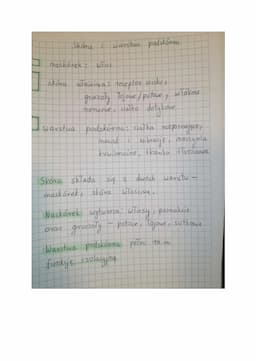 Skóra i warstwa podskórna
naskórek: włos
skóra właściwa: receptor ucisku,
gruczoły łojowe/potowe, włókna
nerwowe, ciałka dotykowe
warstwa podskórna: ciałka
naczynia
krwionośne, tkanka tłuszczowa
Skóra składa się z dwóch warstw -
naskórek, skóra właściwa.
Naskórek wytwarza włosy, paznokcie
oraz gruczoły - potowe, łojowe, sutkowe
Warstwa podskórna pełni m.in.
funkcję izolacyjną